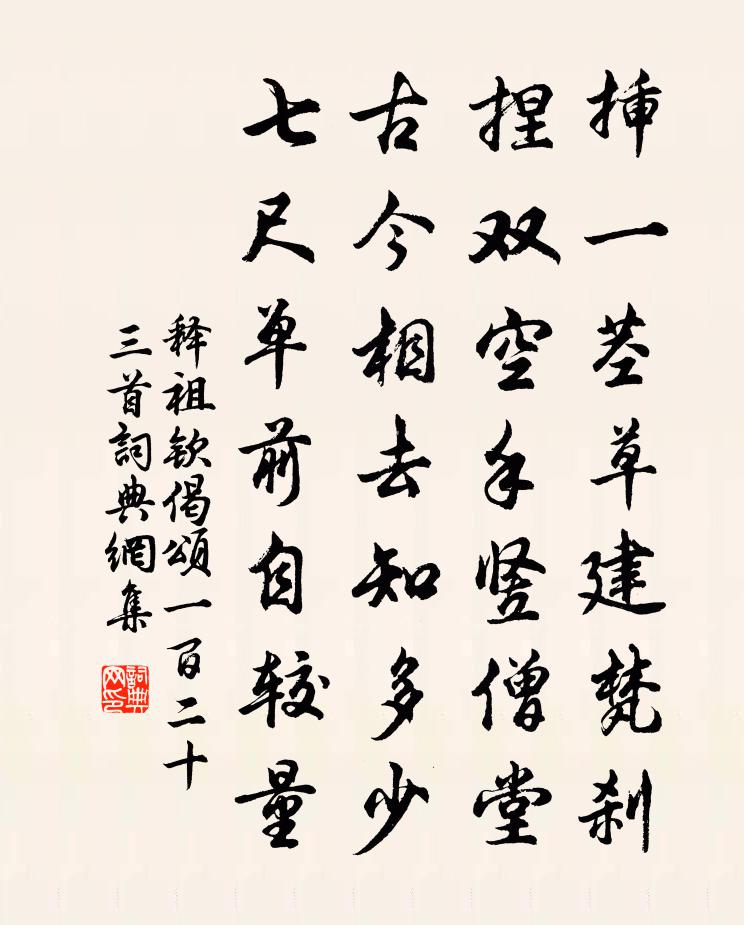 插一茎草建梵刹
捏双空手竖僧堂
古今相去知多少
七尺单前自较量
释祖钦偈頌一百二十
三首詞典網集
詞典
网印